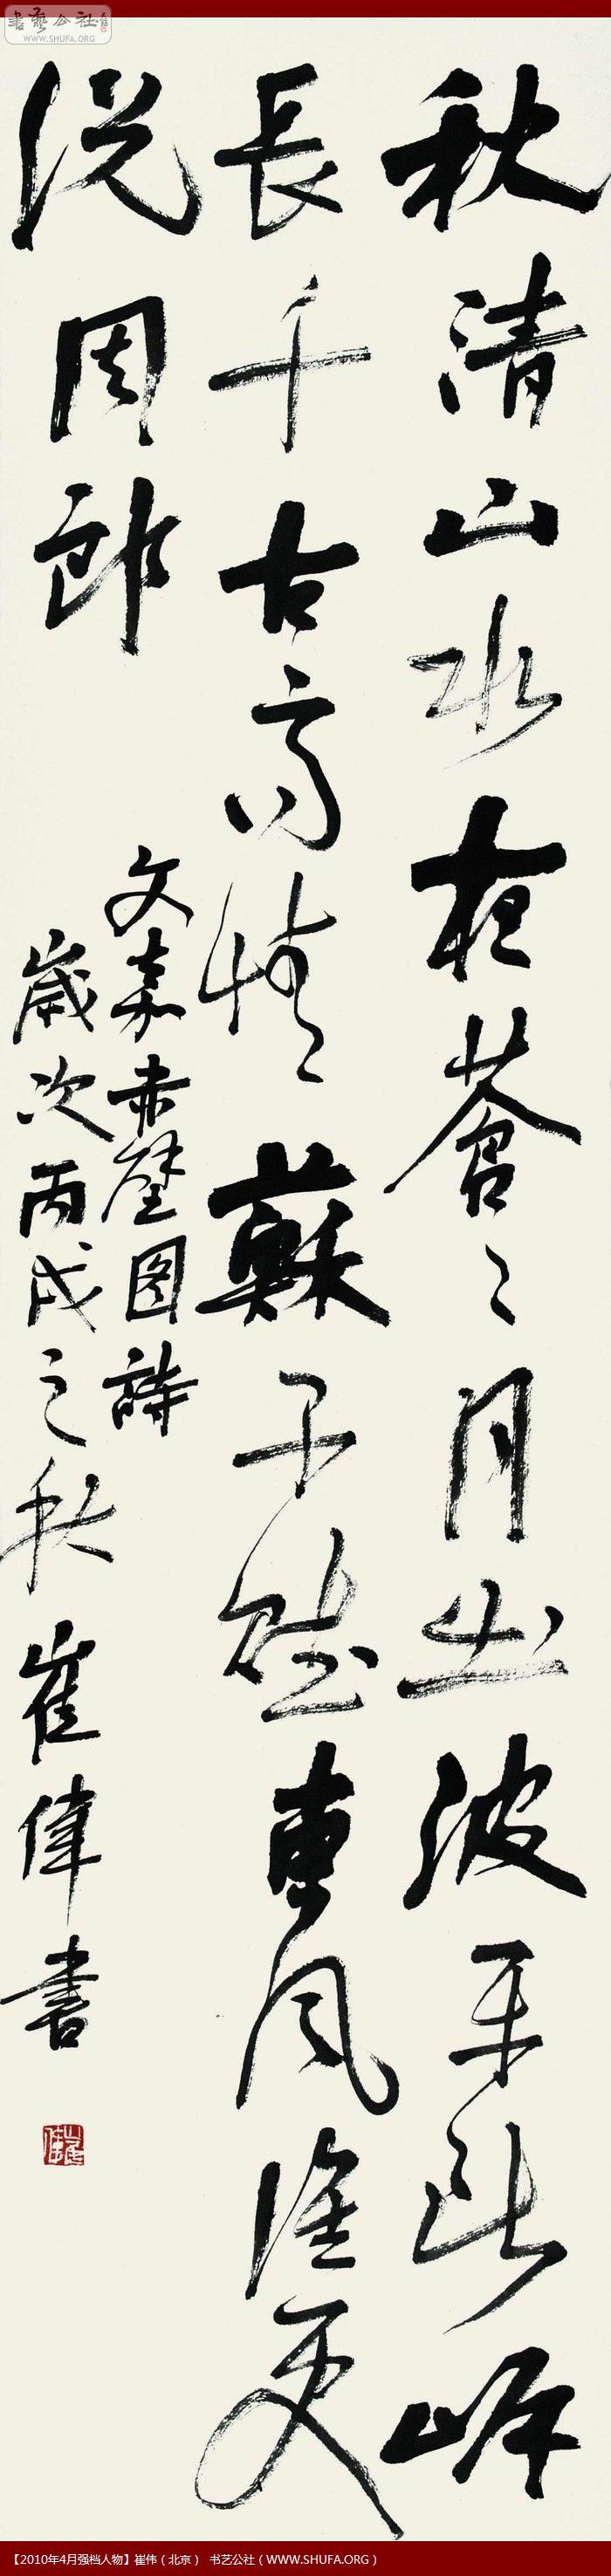 書藝公社
WWW.SHUFA.ORG
秋清山水夜蒼〻月出波平断岸
長千古高情蘇子賦東風誰更
説周郎
文嘉赤壁图詩
歲次丙戌之秋崔偉書
【2010年4月强档人物】崔伟（北京） 书艺公社（WWW.SHUFA.ORG）